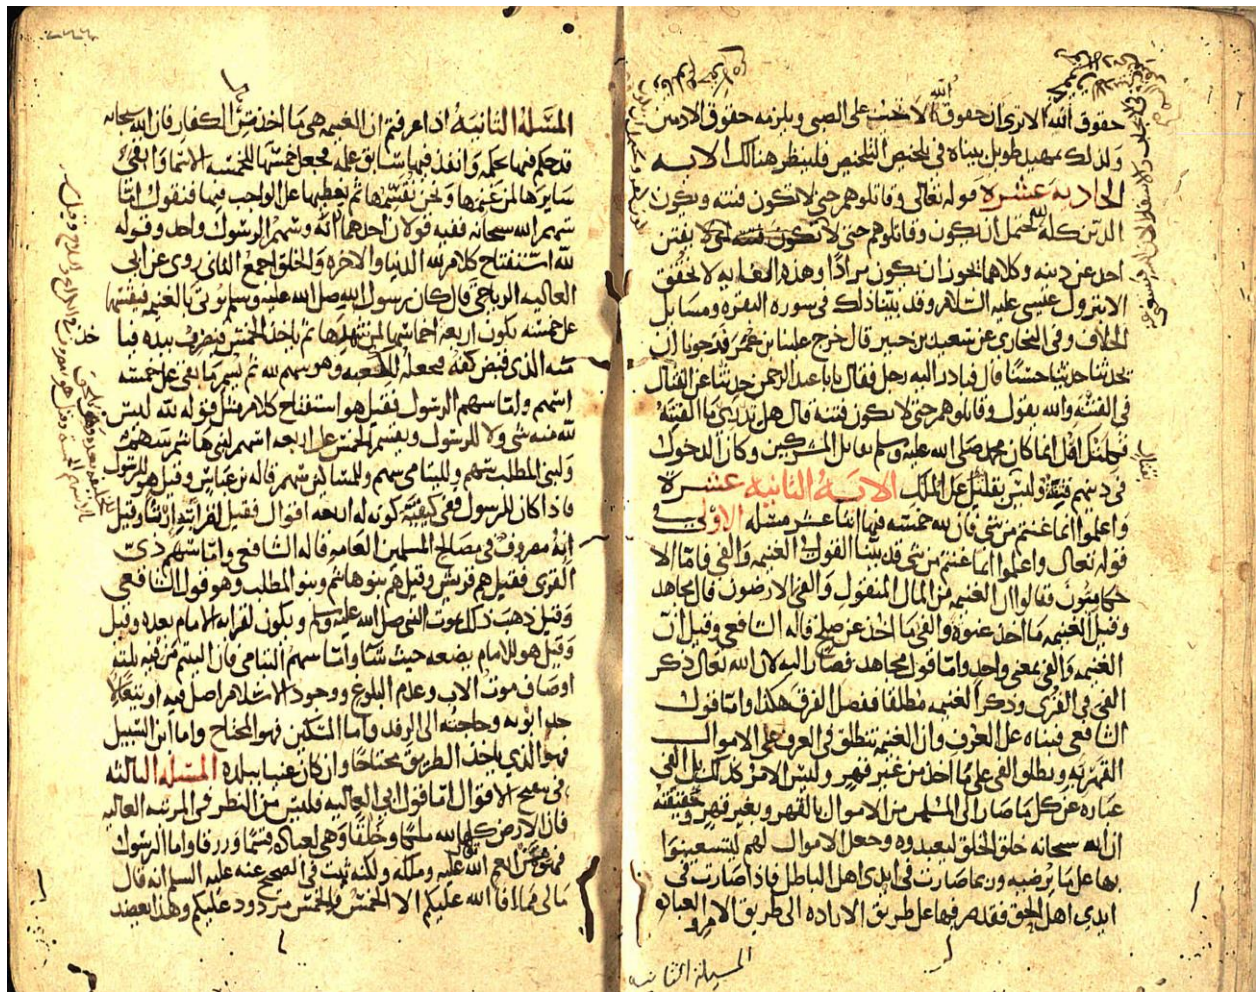 حقوق الله الا ترى ان حقوق الله لا تجب على الصبي ويلزمه حقوق الادميين
ولذلك تمهيد طويل بيناه في تلخيص التلخيص فلينظر هنالك الايه
الحاديه عشره قوله تعالى وقاتلوهم حتى لا تكون فتنه ويكون
الدين كله لله يحتمل ان يكون وقاتلوهم حتى لا تكون فتنه اي لا يفتن
احد عن دينه وكلاهما يجوز ان يكون مرادا وهذه الغايه لا تحقق
الا بنزول عيسى عليه السلام وقد بينا ذلك في سوره البقره ومسايل
الخلاف وفي البخاري عن سعيد بن جبير قال خرج علينا بن عمر فرجونا ان
يحدثنا حديثا حسنا قال فبادر اليه رجل فقال يابا عبد الرحمن حدثنا عن القتال
في الفتنه والله يقول وقاتلوهم حتى لا تكون فتنه قال هل تدري ما الفتنه
ثكلتك امك انما كان محمد صلى الله عليه وسلم يقاتل المشركين وكان الدخول
في دينهم فتنه وليس بقتالكم على الملك الايه الثانيه عشره
واعلموا انما غنمتم من شي فان لله خمسه فيها اثنا عشر مسله الاولى في
قوله تعالى واعلموا انما غنمتم من شي قد بينا القول في الغنيمه والفي فاما الا
حكاميون فقالوا ان الغنيمه من المال المنقول والفي الارضون قال مجاهد
وقيل الغنيمه ما اخذ عنوه والفي ما اخذ عن صلح قاله الشافعي وقيل ان
الغنيمه والفي بمعنى واحد واما قول مجاهد فصار اليه لان الله تعالى ذكر
الفي في القرى وذكر الغنيمه مطلقا ففصل الفرق هكذا واما قول
الشافعي فبناه على العرف وان الغنيمه تنطلق في العرف على الاموال
القهريه وينطلق الفي على ما اخذ من غير قهر وليس الامر كذلك بل الفي
عباره عن كل ما صار الى المسلمين من الاموال بالقهر وبغير قهر وحقيقته
ان الله سبحانه خلق الخلق ليعبدوه وجعل الاموال لهم ليستعينوا
بها على ما يرضيه وربما صارت في ايدي اهل الباطل فاذا صارت في
ايدي اهل الحق فقد صرفها عن طريق الاراده الى طريق الامر والعباده
المسيلة الثانيه
المسله الثانيه اذا عرفتم ان الغنيمه هي ما اخذ من الكفار فان الله سبحانه
قد حكم فيها بحكمه وانفذ فيها سابق علمه فجعل خمسها للخمسه الاسما وابقى
سايرها لمن غنمها ونحن نسميها ثم نعطفها على الواجب فيها فنقول اما
سهم الله سبحانه ففيه قولان احدهما انه وسهم الرسول واحد وقوله
لله استفتاح كلام لله الدنيا والاخره والخلق اجمع الثاني روي عن ابي
العاليه الرياحي قال كان رسول الله صلى الله عليه وسلم يوتى بالغنيمه فيقسمها
على خمسه يكون اربعه اخماسها لمن شهدها ثم ياخذ الخمس فيضرب بيده فيا
خذ منه الذي قبض كفه فيجعله للكعبه وهو سهم لله ثم يقسم ما بقي على خمسه
اسهم واما سهم الرسول فقيل هو استفتاح كلام مثل قوله لله ليس
لله منه شي ولا للرسول ويقسم الخمس على اربعه اسهم لبني هاشم سهم
ولبني المطلب سهم ولليتامى سهم وللمساكين سهم قاله بن عباس وقيل هو للرسول
فاذا كان للرسول ففي كيفيه كونه له اربعه اقوال فقيل لقرابته ارثا وقيل
انه مصروف في مصالح المسلمين العامه قاله الشافعي واما سهم ذي
القربى فقيل هم قريش وقيل هم بنو هاشم وبنو المطلب وهو قول الشافعي
وقيل ذهب ذلك بموت النبي صلى الله عليه وسلم ويكون لقرابه الامام بعده وقيل
وقيل هو للامام يضعه حيث شا واما سهم اليتامى فان اليتيم من فيه ثلثه
اوصاف موت الاب وعدم البلوغ ووجود الاسلام اصلا فيه او تبعا لا
حد ابويه وحاجته الى الرفد واما المسكين فهو المحتاج واما ابن السبيل
فهو الذي ياخذ الطريق محتاجا وان كان غنيا ببلده المسله الثالثه
في تنقيح الاقوال اما قول ابي العاليه فليس من النظر في المرتبه العاليه
فان الارض كلها لله ملكا وخلقا وهي لعباده قسما ورزقا واما الرسول
فهو ممن انعم الله عليه وملكه ولكنه ثبت في الصحيح عنه عليه السلم انه قال
ما لي مما افا الله عليكم الا الخمس والخمس مردود عليكم وهذا يعضد